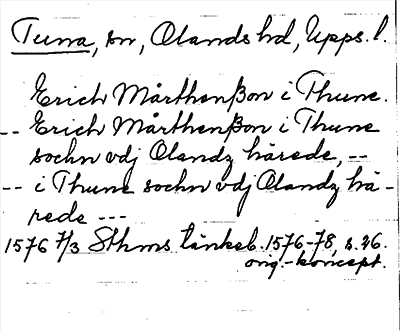 Tuna, sn, Olands hd, Upps. l.
Erich Mårthenßon i Thune.
-- Erich Mårthenßon i Thune
sochn vdj Olandz härede, --
-- i Thune sochn vdj Olandz hä-
rede ---
1576 7/3 Sthms tänkeb. 1576-78, s. 26.
orig.-koncept.